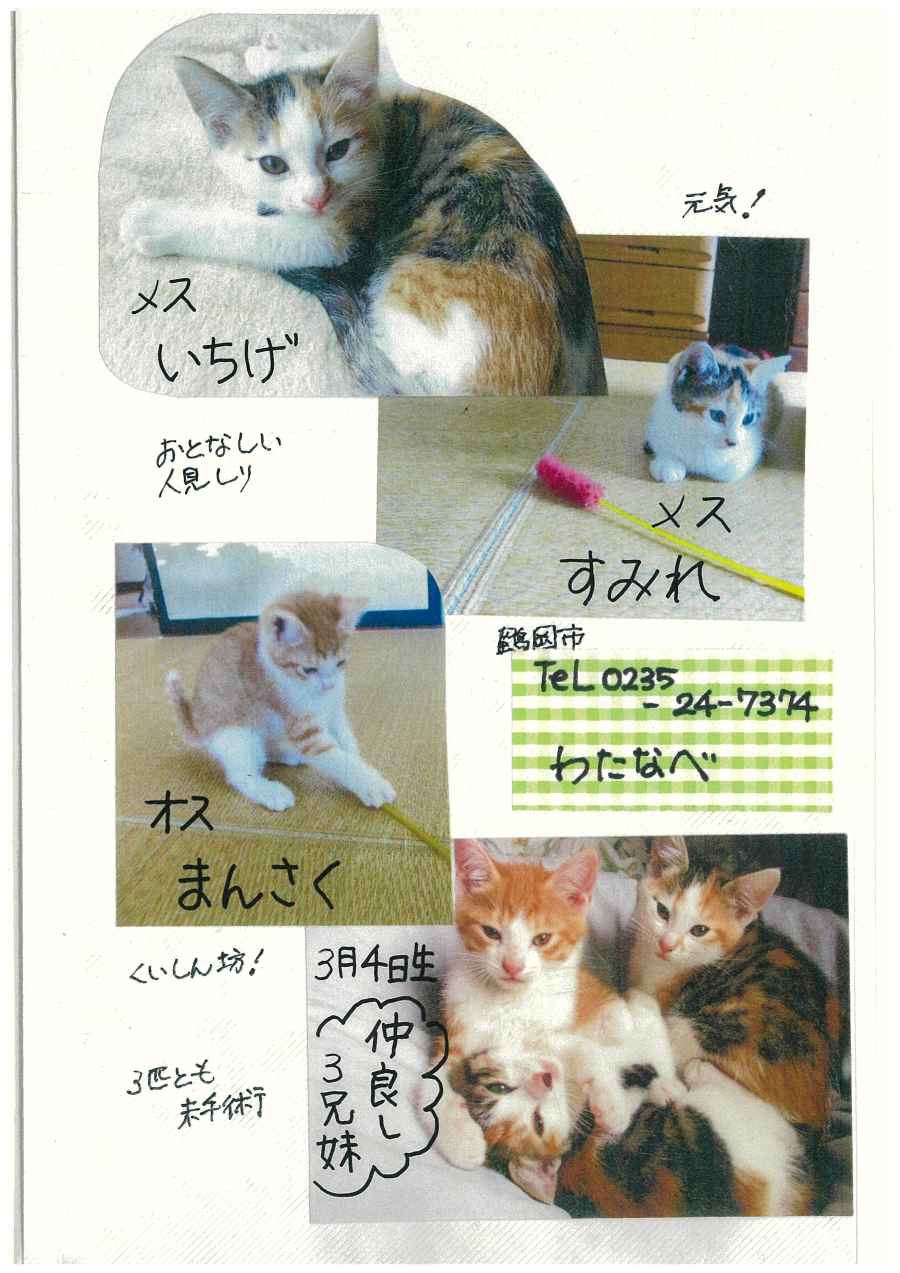 元気!
メス
いちげ
おとなしい
人見しり
メス
すみれ
鶴岡市
TeL 0235
-24-7374
わたなべ
オス
まんさく
くいしん坊!
3月4日生
仲良し
3兄妹
3匹とも
未手術